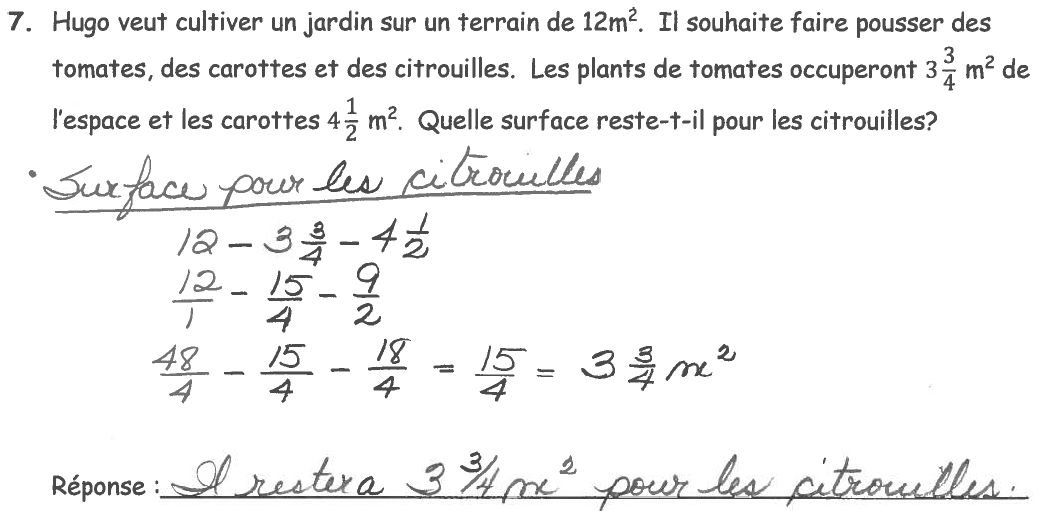 7. Hugo veut cultiver un jardin sur un terrain de 12m². Il souhaite faire pousser des
tomates, des carottes et des citrouilles. Les plants de tomates occuperont 3 3/4 m² de
l'espace et les carottes 4 1/2 m². Quelle surface reste-t-il pour les citrouilles?
• Surface pour les citrouilles
12 - 3 3/4 - 4 1/2
12/1 - 15/4 - 9/2
48/4 - 15/4 - 18/4 = 15/4 = 3 3/4 m²
Réponse : Il restera 3 3/4 m² pour les citrouilles.